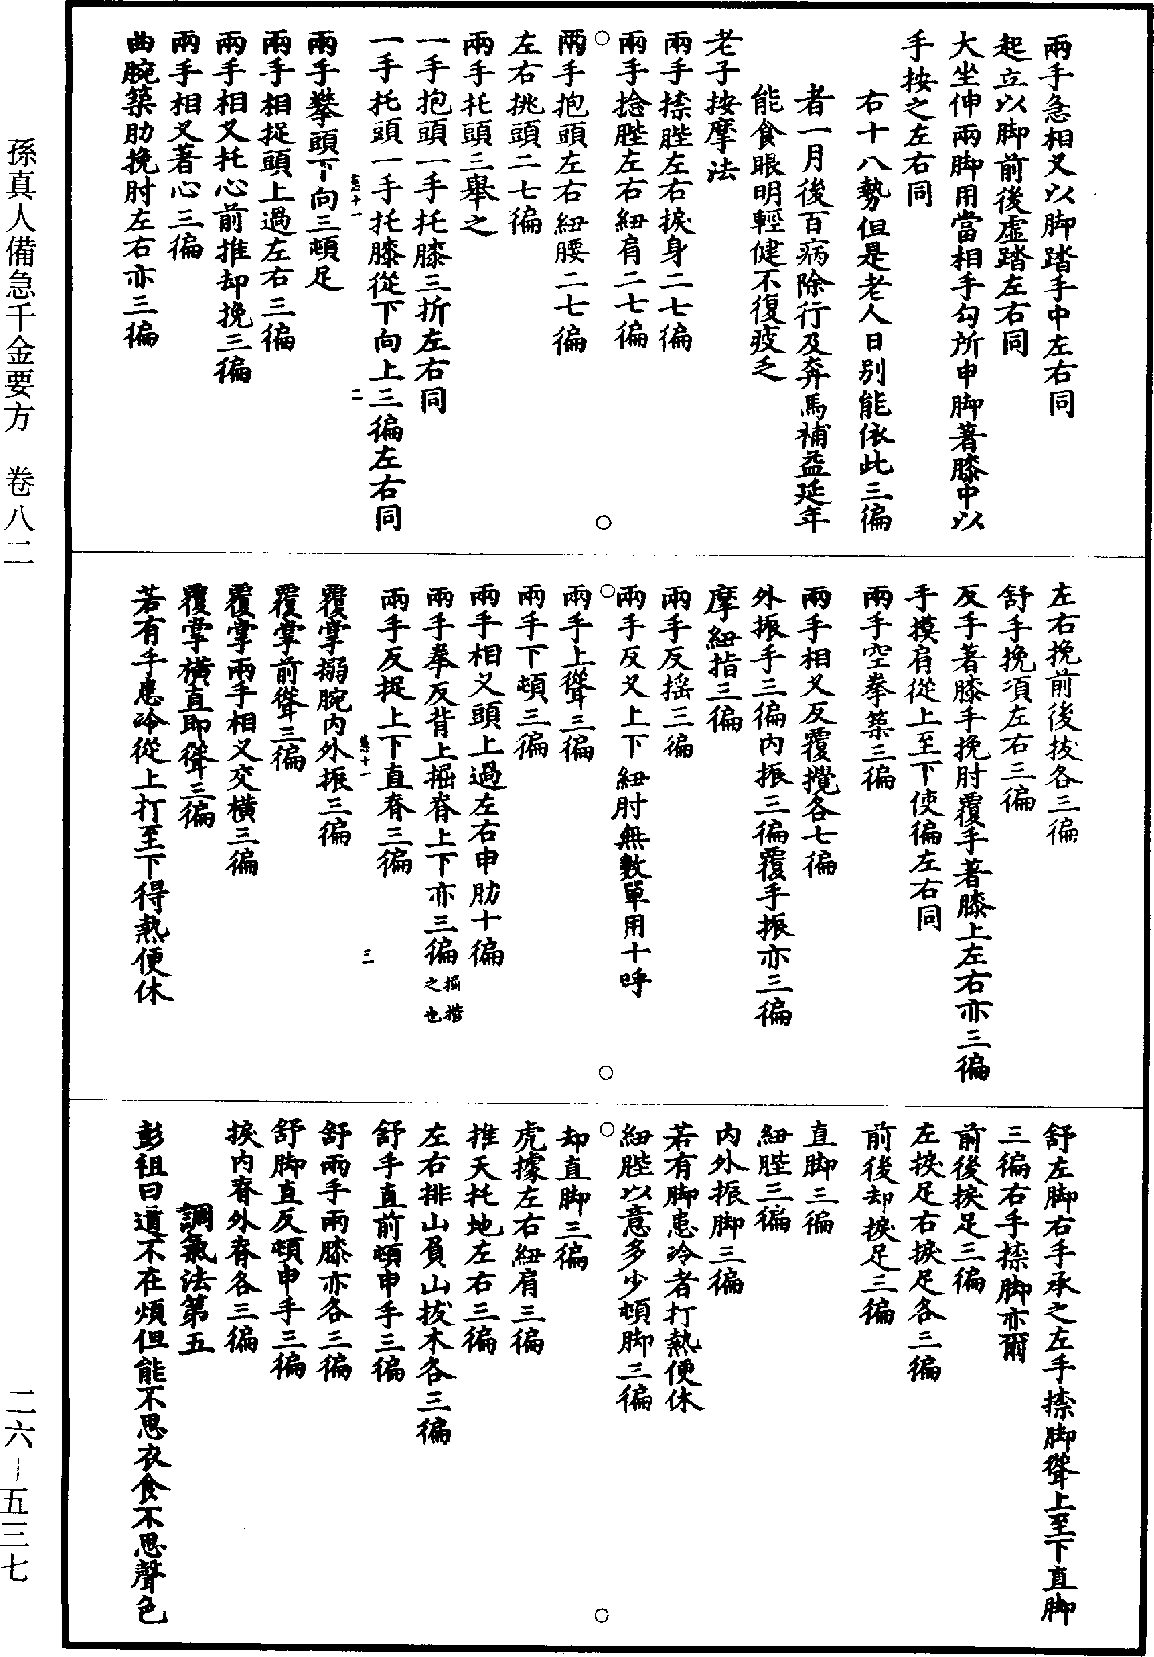 兩手急相叉以脚踏手中左右同
起立以脚前後虛踏左右同
大坐伸兩脚用當相手勾所申脚著膝中以
手按之左右同
右十八勢但是老人日別能依此三徧
者一月後百病除行及奔馬補益延年
能食眼明輕健不復疲乏
老子按摩法
兩手捺䏶左右捩身二七徧
兩手捻䏶左右紐肩二七徧
兩手抱頭左右紐腰二七徧
左右挑頭二七徧
兩手托頭三舉之
一手抱頭一手托膝三折左右同
一手托頭一手托膝從下向上三徧左右同
兩手攀頭下向三頓足
兩手相捉頭上過左右三徧
兩手相叉托心前推却挽三徧
兩手相叉著心三徧
曲腕築肋挽肘左右亦三徧
左右挽前後拔各三徧
舒手挽項左右三徧
反手著膝手挽肘覆手著膝上左右亦三徧
手摸肩從上至下使徧左右同
兩手空拳築三徧
兩手相叉反覆攪各七徧
外振手三徧內振三徧覆手振亦三徧
摩紐指三徧
兩手反搖三徧
兩手反叉上下紐肘無數單用十呼
兩手上聳三徧
兩手下頓三徧
兩手相叉頭上過左右申肋十徧
兩手拳反背上掘脊上下亦三徧掘揩之也
兩手反捉上下直脊三徧
覆掌搦腕內外振三徧
覆掌前聳三徧
覆掌兩手相叉交橫三徧
覆掌橫直即聳三徧
若有手患冷從上打至下得熱便休
舒左脚右手承之左手捺脚聳上至下直脚
三徧右手捺脚亦爾
前後捩足三徧
左捩足右捩足各三徧
前後却捩足三徧
直脚三徧
紐䏶三徧
內外振脚三徧
若有脚患冷者打熱便休
紐䏶以意多少頓脚三徧
却直脚三徧
虎據左右紐肩三徧
推天托地左右三徧
左右排山負山拔木各三徧
舒手直前頓申手三徧
舒兩手兩膝亦各三徧
舒脚直反頓申手三徧
捩內脊外脊各三徧
調氣法第五
彭祖曰道不在煩但能不思衣食不思聲色
孫真人備急千金要方　卷八二
二六—五三七